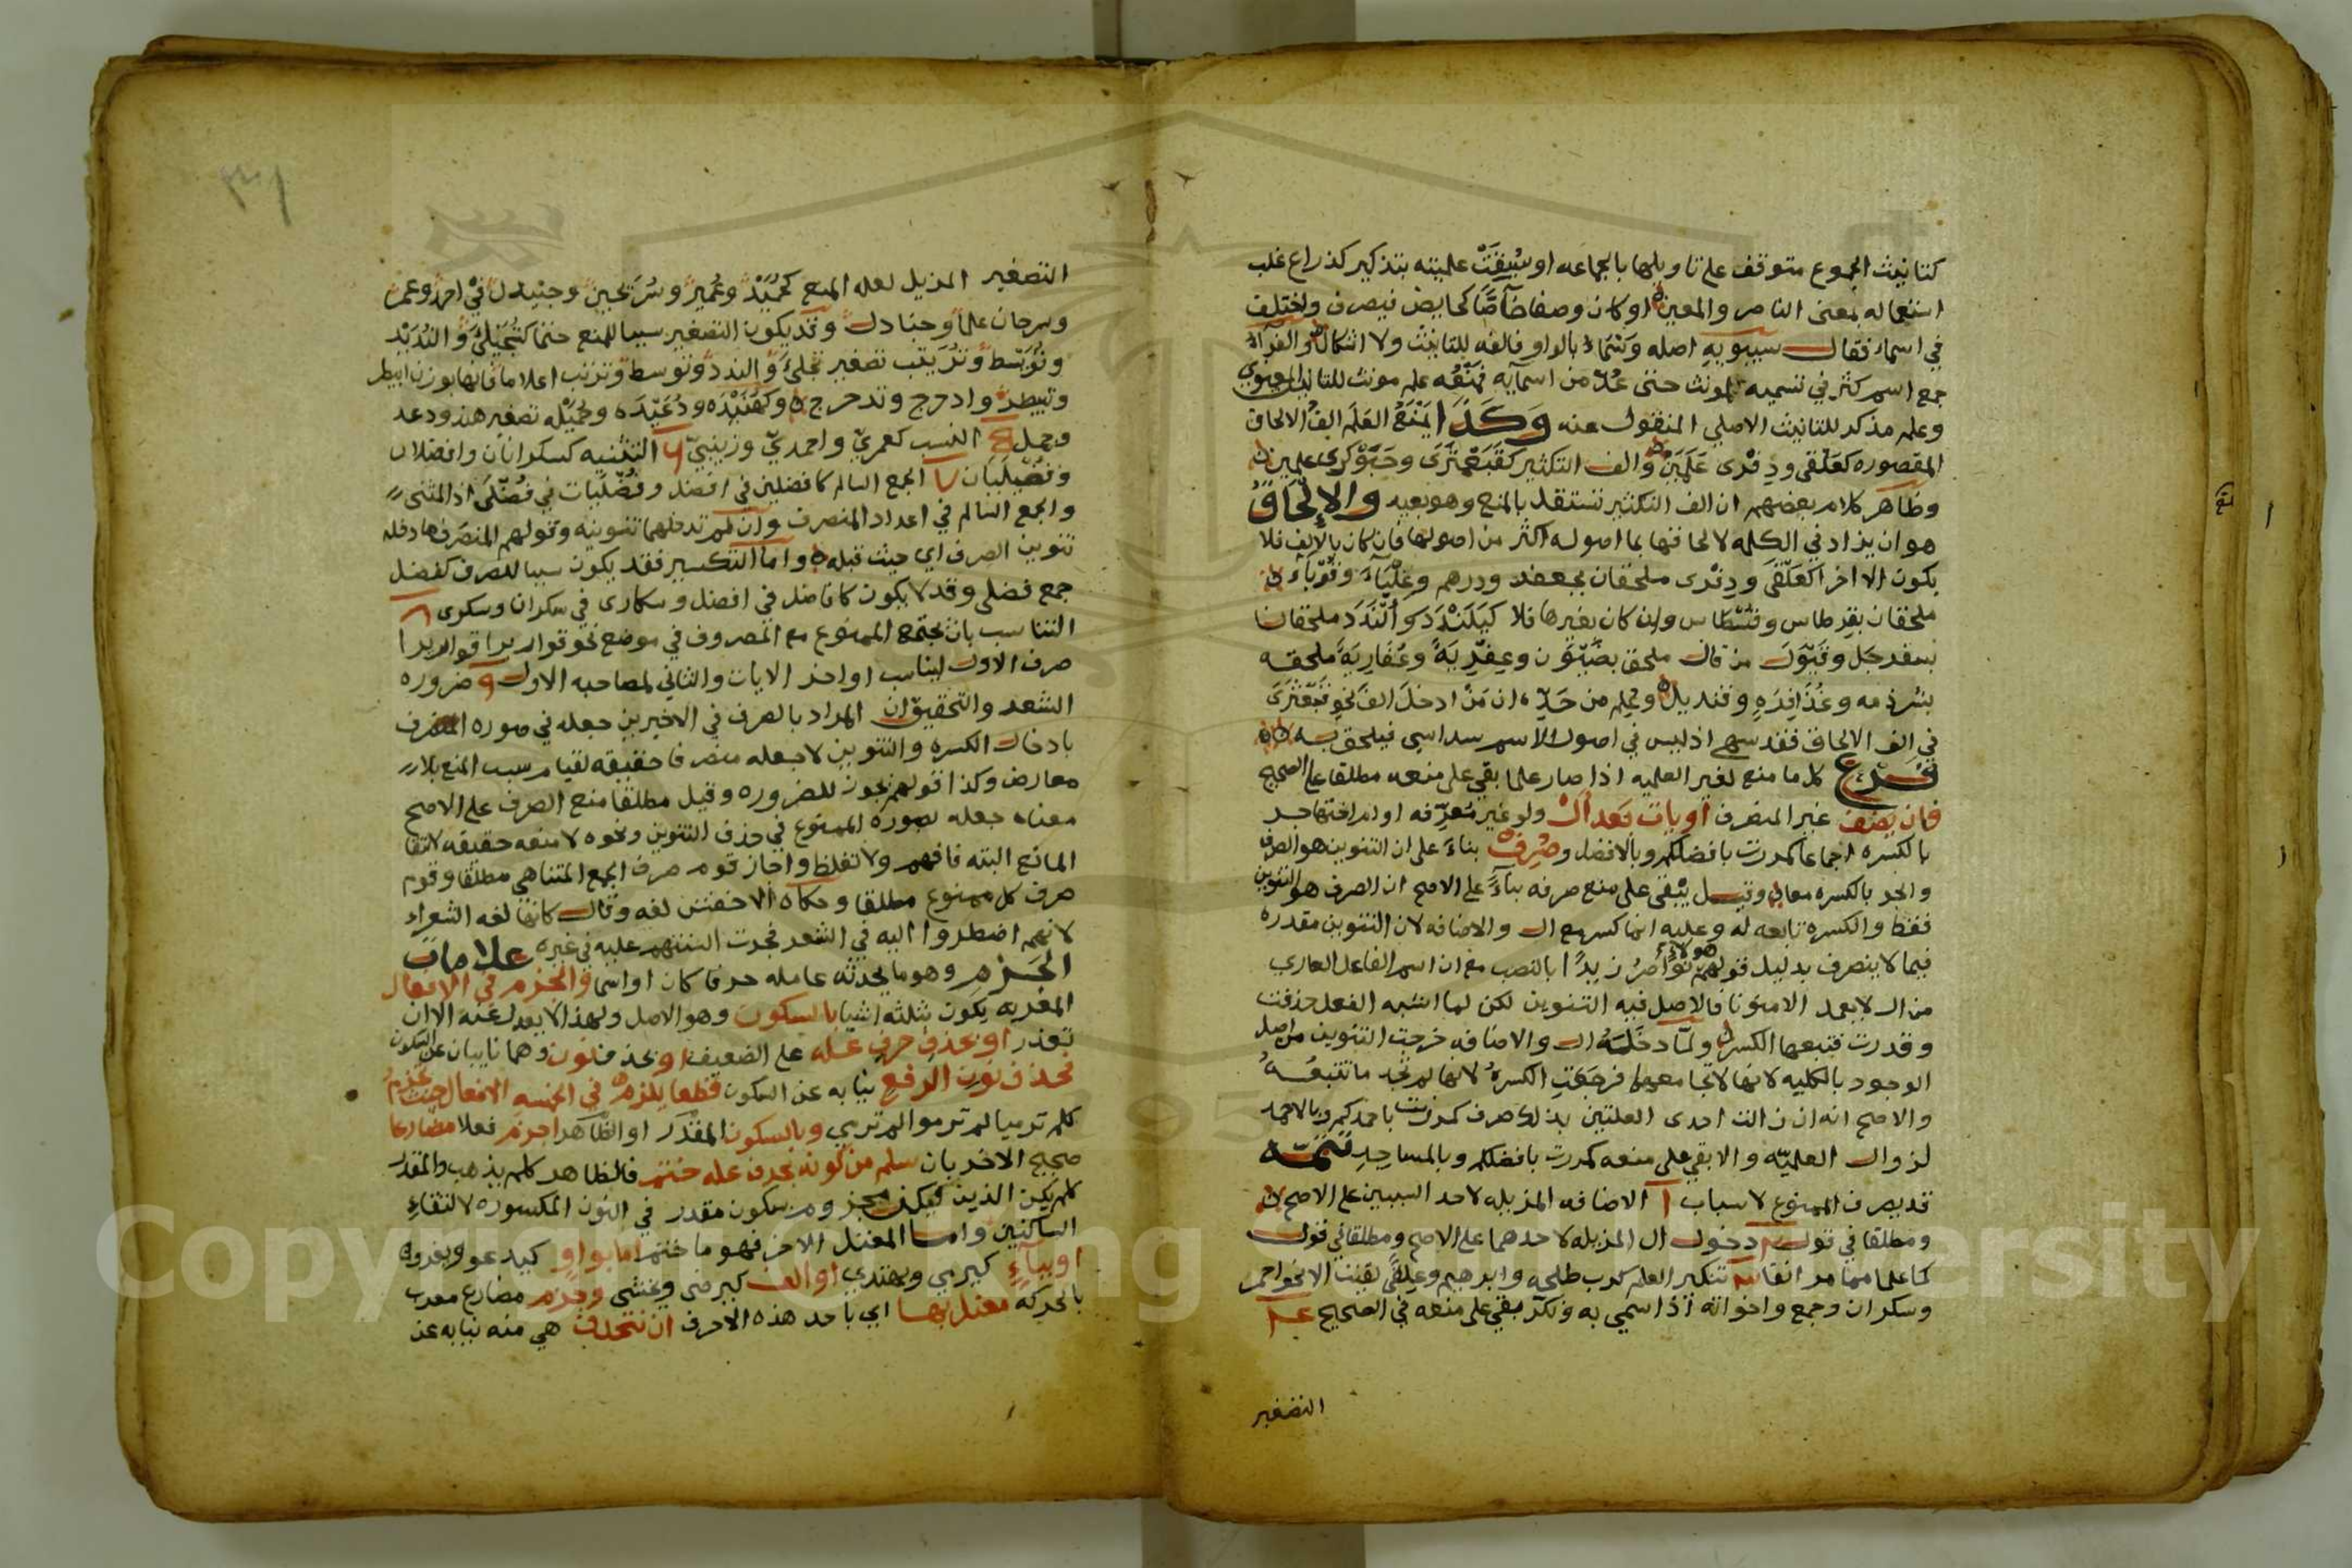 كتانيث الجموع متوقف على تاويلها بالجماعه او سُبِقَتْ علميته بتذكير كذراع غلب
استعماله بمعنى الناصر والمعين او كان وصفا خآصًّا كحايض فيصرف واختلف
في اسماء فقال سيبويه اصله وَسْمَاء بالواو فالفه للتانيث ولا اشكال والفرآء
جمع اسم كثر في تسميه المونث حتى عُدّ من اسمآيه فمَنْعُه علم مونث للتانيث المعنوي
وعلم مذكر للتانيث الاصلي المنقول عنه وَكَذَا يَمْنَعُ العَلَم الفُ الالحاق
المقصوره كعَلْقى ودِفْرى عَلَمَين والف التكثير كقَبَعْثَرَى وحَبَوْكرى علمين
وظاهر كلام بعضهم ان الف التكثير تستقل بالمنع وهو بعيد والإلحَاقُ
هو ان يزاد في الكلمه لالحاقها بما اصوله اكثر من اصولها فان كان بالالف فلا
يكون الا اخرا كعَلْقَى ودِفْرى ملحقان بجعفر ودرهم وعِلْبَآء وقُوْبَآء
ملحقان بقرطاس وقُسْطاس وان كان بغيرها فلا كيَلَنْدَد وأَلَنْدَد ملحقان
بسفرجل
بشرذمه وعُذَافِرَه وقنديل وعُلِم من حَدِّه ان مَنْ ادخل الف نحو قَبَعْثَرَى
في الف الالحاق فقد سهى اذ ليس في اصول الاسم سداسي فيلحق به
فرع كل ما منع لغير العلميه اذا صار علما بقي على منعه مطلقا على الصحيح
فان يضف غير المنصرف أو يات بَعد ال ولو غير مُعرِّفه او ام اختها جر
بالكسره اجماعا كمررت بافضلكم وبالافضل وصُرِفَ بناءً على ان التنوين هو الصرف
والجر بالكسره معا وقيل يبْقى على منع صرفه بنآءً على الاصح ان الصرف هو التنوين
فقط والكسره تابعه له وعليه انما كسر مع ال والاضافه لان التنوين مقدره
فيما لا ينصرف بدليل قولهم هولاء ضوارب زيدًا بالنصب مع ان اسم الفاعل العاري
من ال لا يعمل الا منونا فالاصل فيه التنوين لكن لما اشبه الفعل حذفت
وقدرت فتبعها الكسر ولمّا دخَلَتْهُ ال والاضافه خرجت التنوين من اصل
الوجود بالكليه لانها لا تجامعهما فرجعَتِ الكسرهُ لانها لم تجد ما تتبعُهُ
والاصح انه ان زالت احدى العلتين بذلك صرف كمررت باحمدكم وبالاحمد
لزوال العلميّه والا بقي على منعه كمررت بافضلكم وبالمساجدِ تَتِمّه
قد يصرف الممنوع لاسباب ا الاضافه المزيله لاحد السببين على الاصح
ومطلقا في قول ٢ دخول ال المزيله لاحدهما على الاصح ومطلقا في قول
كما علما مما مر انفا ٣ تنكير العلم كرب طلحه وابرهيم وعِلقًى لقيت الا نحو احمر
وسكران وجمع واخواته اذا سمي به ونكر بقي على منعه في الصحيح ٤
التصغير
٣١
التصغير المزيل لعله المنع كحُمَيْد وعُمَيْر وسُرَيْحين وجنيدل في احمد وعمر
وسرحان علما وجنادل وقد يكون التصغير سببا للمنع
وتُوَيْسط وتُرَيْتب تصغير تِحْلِئ والندد وتوسط وترتب اعلاما فانها بوزن ابيطر
وتبيطر وادحرج وتدحرج وكهُنَيْدَه ودُعَيْدَه وجُمَيْله تصغير هند ودعد
وجمل ٥ النسب كعمريّ واحمديّ وزينبيّ ٦ التثنيه كسكرانان وافضلان
وفُضْلَيَان ٧ الجمع السالم كافضلين في افضل وفُضْلَيَات في فُضْلَى اذ المثنى
والجمع السالم في اعداد المنصرف وان لم تدخلهما تنوينه وقولهم المنصرف ما دخله
تنوين الصرف اي حيث قبله واما التكسير فقد يكون سببا للصرف كفُضَل
جمع فضلى وقد لا يكون كافاضل في افضل وسكارى في سكران وسكرى ٨
التناسب بان يجتمع الممنوع مع المصروف في موضع نحو قواريرا قواريرا
صرف الاول ليناسب اواخر الايات والثاني لمصاحبه الاول ٩ ضروره
الشعر والتحقيق ان المراد بالصرف في الاخيرين جعله في صوره المنصرف
بادخال الكسره والتنوين لا جعله منصرفا حقيقه لقيام سبب المنع بلا
معارض وكذا قولهم يجوز للضروره وقيل مطلقا منع الصرف على الاصح
معناه جعله بصوره الممنوع في حذف التنوين ونحوه لا منعه حقيقه لانتفا
المانع البته فافهم ولا تغلط واجاز قوم صرف الجمع المتناهي مطلقا وقوم
صرف كل ممنوع مطلقا وحكاه الاخفش لغه وقال كانها لغه الشعراء
لانهم اضطروا اليه في الشعر فجرت السنتهم عليه في غيره علامات
الجَزْمِ وهو ما يحدثه عامله حرفا كان او اسما والجزم في الافعال
المعربه يكون بثلثه اشيا بالسكون وهو الاصل ولهذا لا يعدل عنه الا ان
تعذر او بحذف حرف عله على الضعيف او بحذف نون وهما نايبان عن السكون
فحذف نون الرفع نيابه عن السكون قطعا يلزم في الخمسه الافعال حيث تجزم
كلم ترميا لم ترموا لم ترمي وبالسكون المقدَّر او الظاهر اجزم فعلا مضارعا
صحيح الاخر بان سلم من كونه بحرف عله ختم فالظاهر كلم يذهب والمقدر
كلم يكن الذين فيكن مجزوم بسكون مقدر في النون المكسوره لالتقاءِ
الساكنين واما المعتل الاخر فهو ما ختم اما بواو كيدعو ويغزو
او بياءٍ كيرمي ويهتدي او الف كيرضى ويخشى وجزم مضارع معرب
بالحركه معتل بها اي باحد هذه الاحرف ان تنحذف هي منه نيابه عن